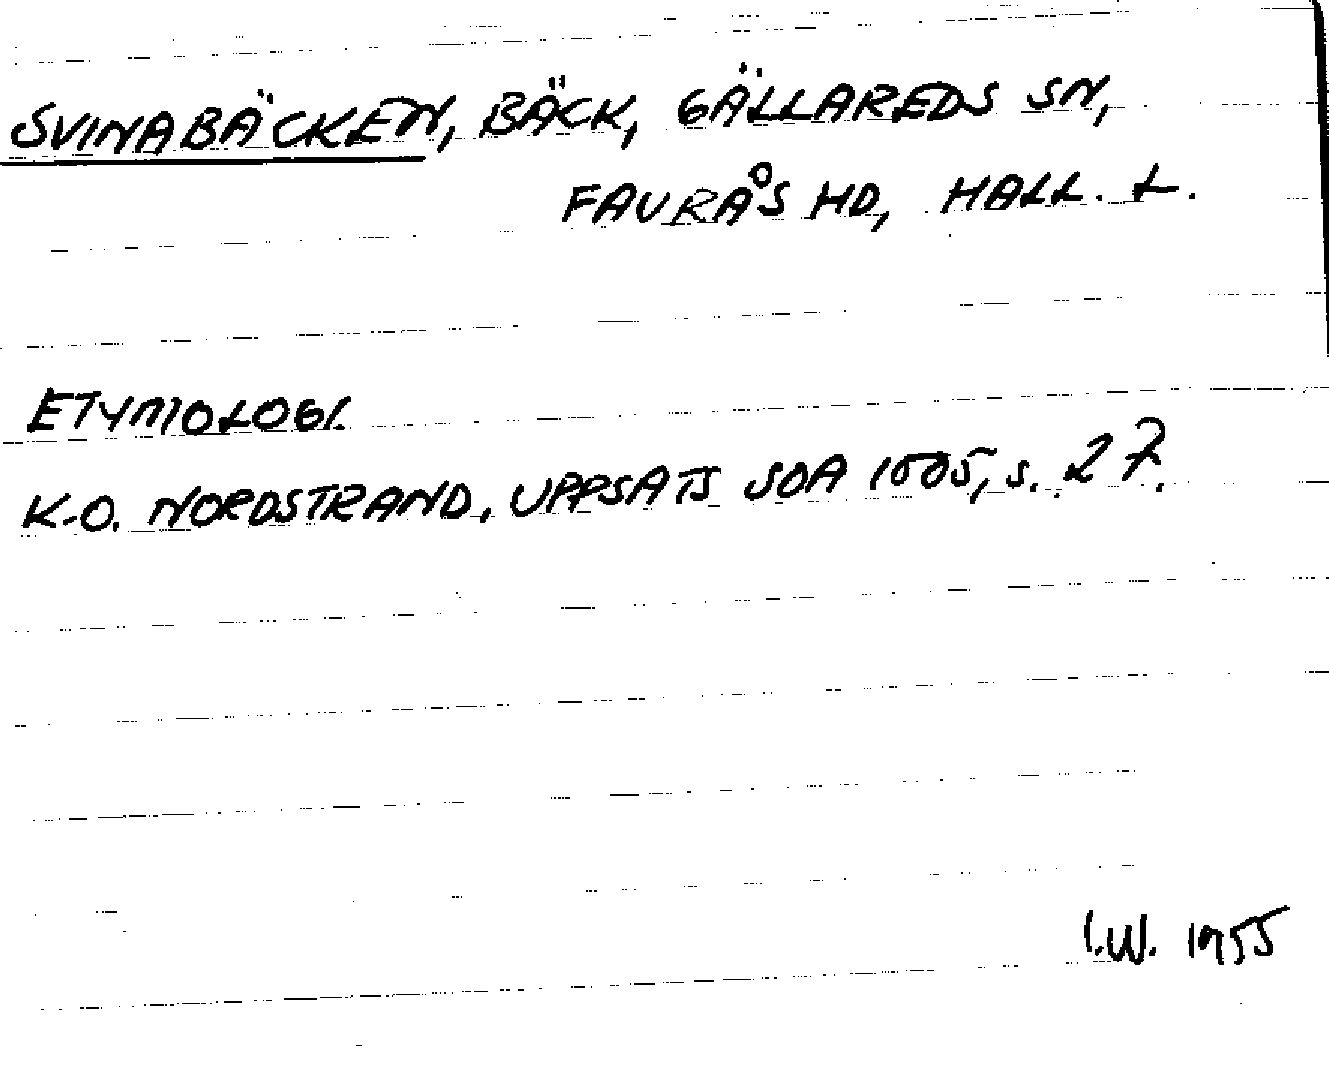 SVINABÄCKEN, BÄCK, GÄLLAREDS SN,
FAURÅS HD, HALL. L.
ETYMOLOGI.
K-O. NORDSTRAND, UPPSATS SOA 1005, S. 27.
I.W. 1955